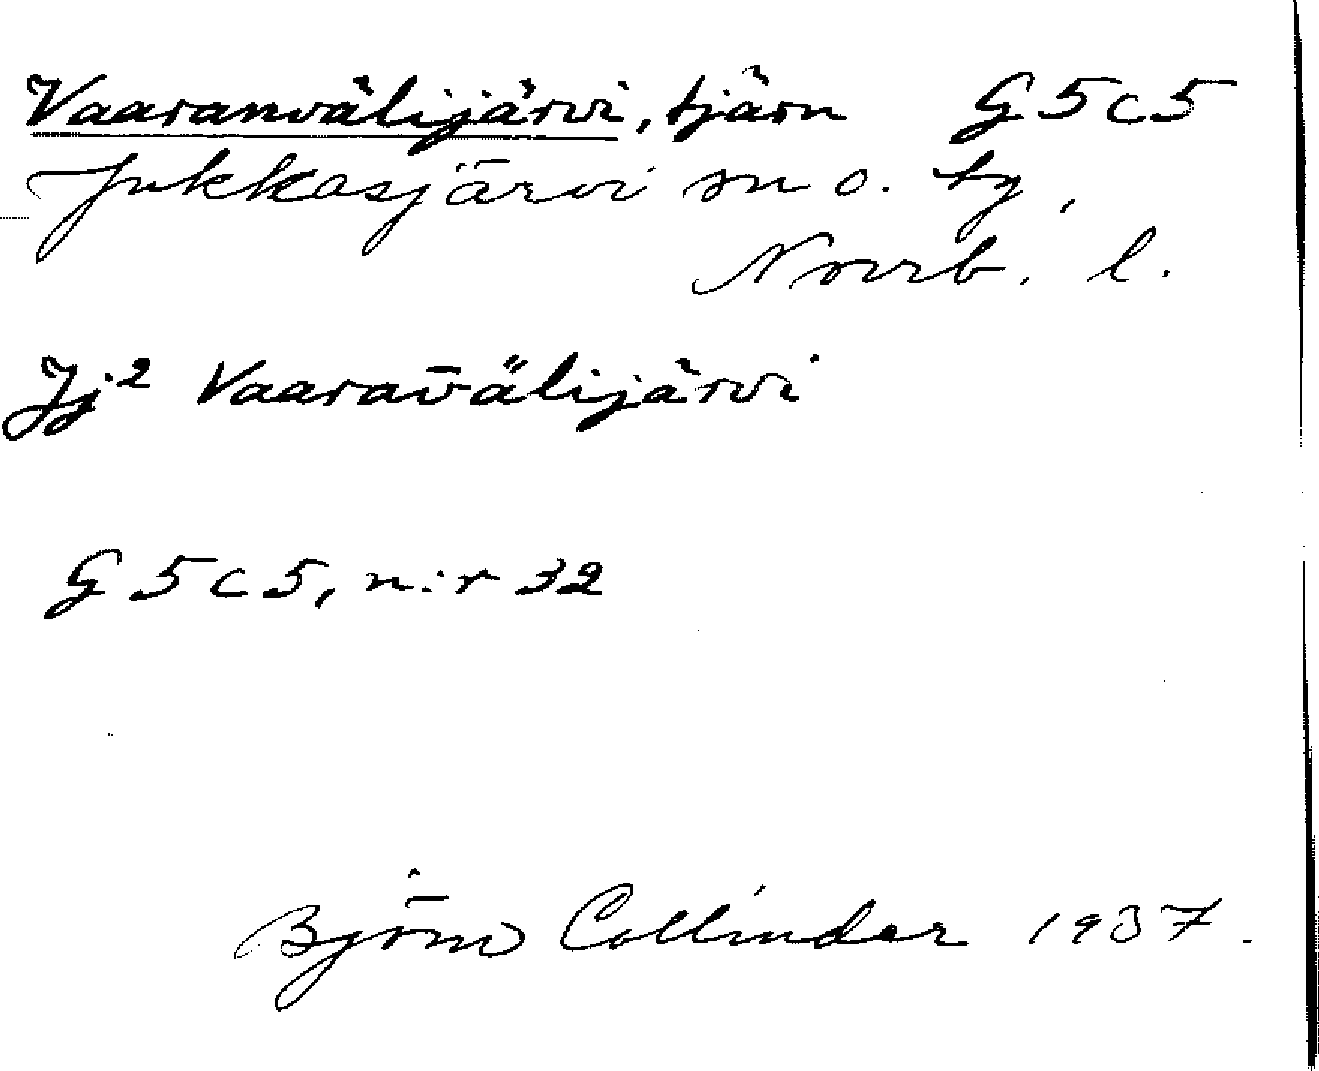 Vaaranvälijärvi, tjärn G5c5
Jukkasjärvi sn o. tg,
Norrb. l.
Jj² Vaarav̄älijärvi
G5c5, n:r 32
Björn Collinder 1937.